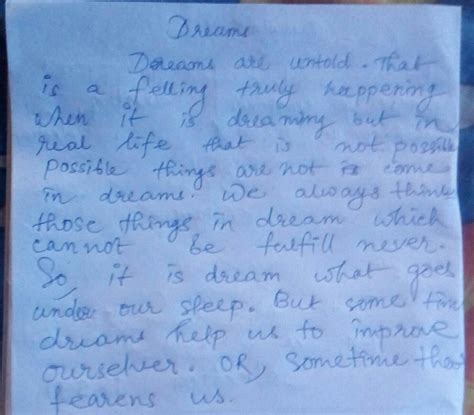 Dreams
Dreams are untold. That
is a felling truly happening
when it is dreaming but in
real life that is not possible
possible things are not is come
in dreams. We always think
those things in dream which
cannot be fulfill never.
So, it is dream what goes
under our sleep. But some tim
dreams help us to improve
ourselver. OR, sometime tho
fearens us.